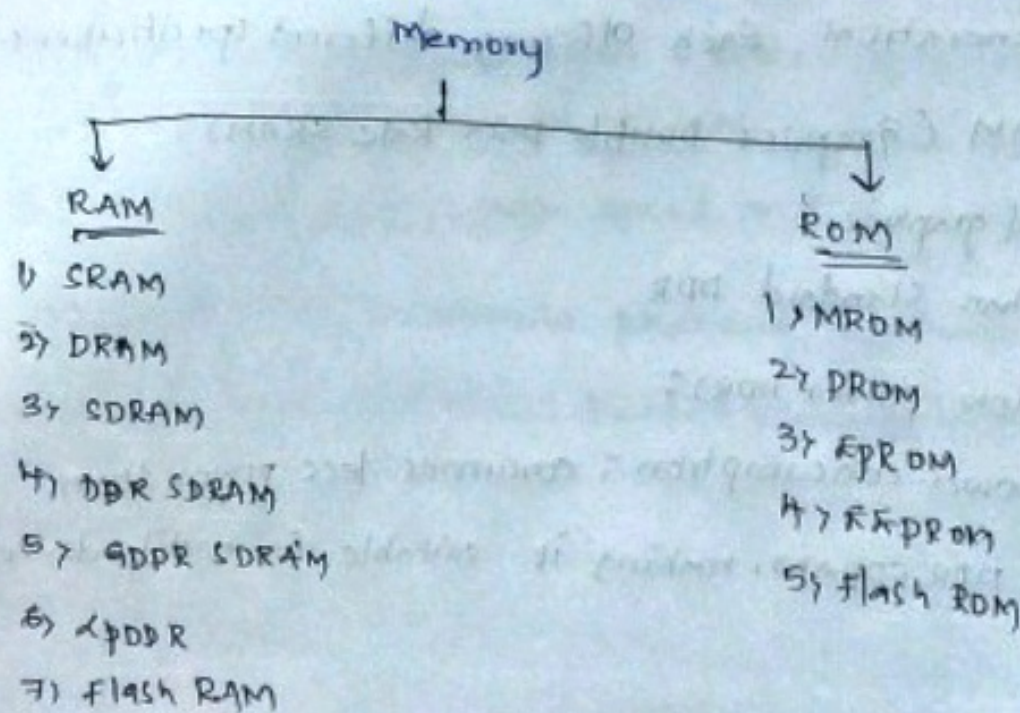 Memory
RAM
1) SRAM
2) DRAM
3) SDRAM
4) DDR SDRAM
5) GDDR SDRAM
6) LPDDR
7) Flash RAM
ROM
1) MROM
2) PROM
3) EPROM
4) EEPROM
5) Flash ROM